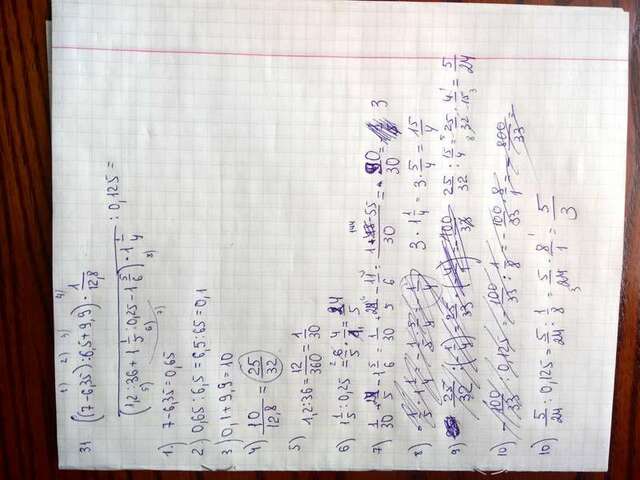 1) 2) 3) 4)
31 ((7-6,35):6,5+9,9)·1/12,8
(1,2:36+1 1/5:0,25-1 5/6)·1 1/4 :0,125=
5) 6) 7) 8)
1) 7-6,35=0,65
2) 0,65:6,5=6,5:65=0,1
3) 0,1+9,9=10
4) 10/12,8=25/32
5) 1,2:36=12/360=1/30
6) 1 1/5:0,25=6/5·4/1=24/5
7) 1/30+24/5-1 5/6=1/30+24/5-11/6=1+144-55/30=90/30=3
8) 3·1 1/4=3·5/4=15/4
9) 25/32:15/4=25/32·4/15=5/24
10) 100/33:0,125=100/33:1/8=-100/33·8/1=-800/33=
10) 5/24:0,125=5/24:1/8=5/24·8/1=5/3